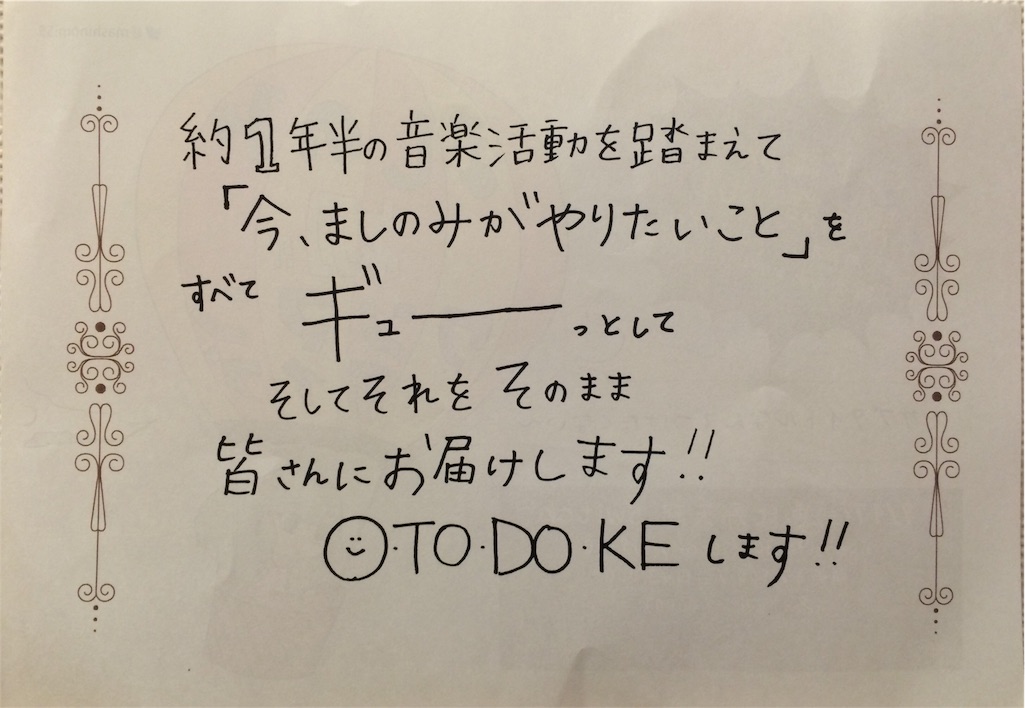 約1年半の音楽活動を踏まえて
「今、ましのみがやりたいこと」を
すべて ギューーっとして
そしてそれをそのまま
皆さんにお届けします!!
O・TO・DO・KE します!!